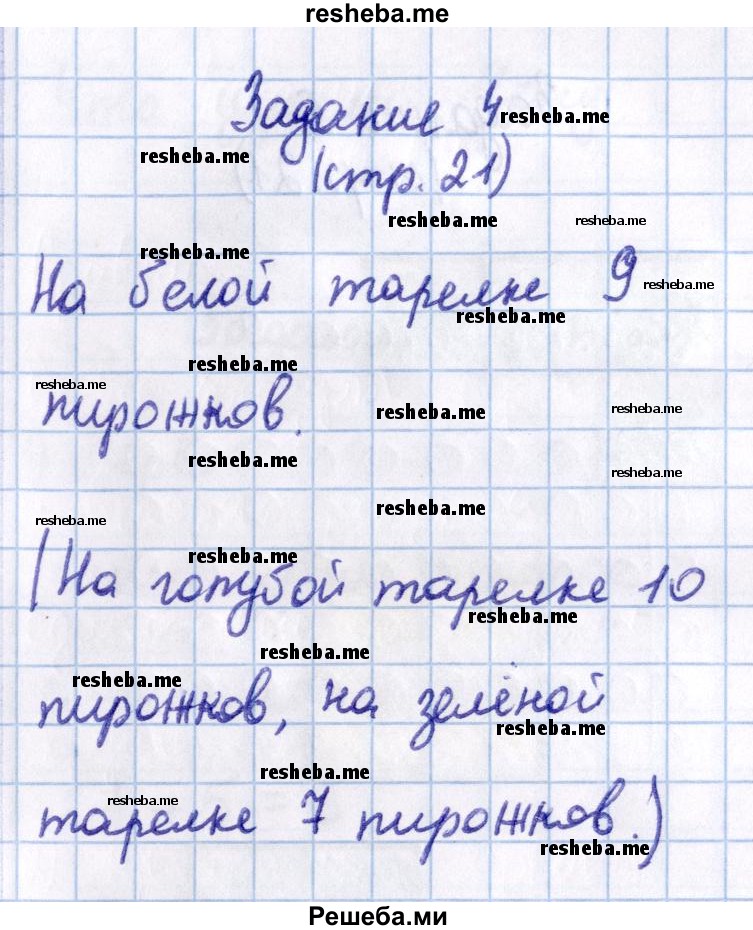 resheba.me
Задание 4
resheba.me
resheba.me
(стр. 21)
resheba.me
resheba.me
resheba.me
На белой тарелке 9
resheba.me
resheba.me
resheba.me
resheba.me
пирожков.
resheba.me
resheba.me
resheba.me
resheba.me
resheba.me
resheba.me
resheba.me
(На голубой тарелке 10
resheba.me
resheba.me
resheba.me
пирожков, на зелёной
resheba.me
resheba.me
resheba.me
тарелке 7 пирожков.)
resheba.me
Решеба.ми